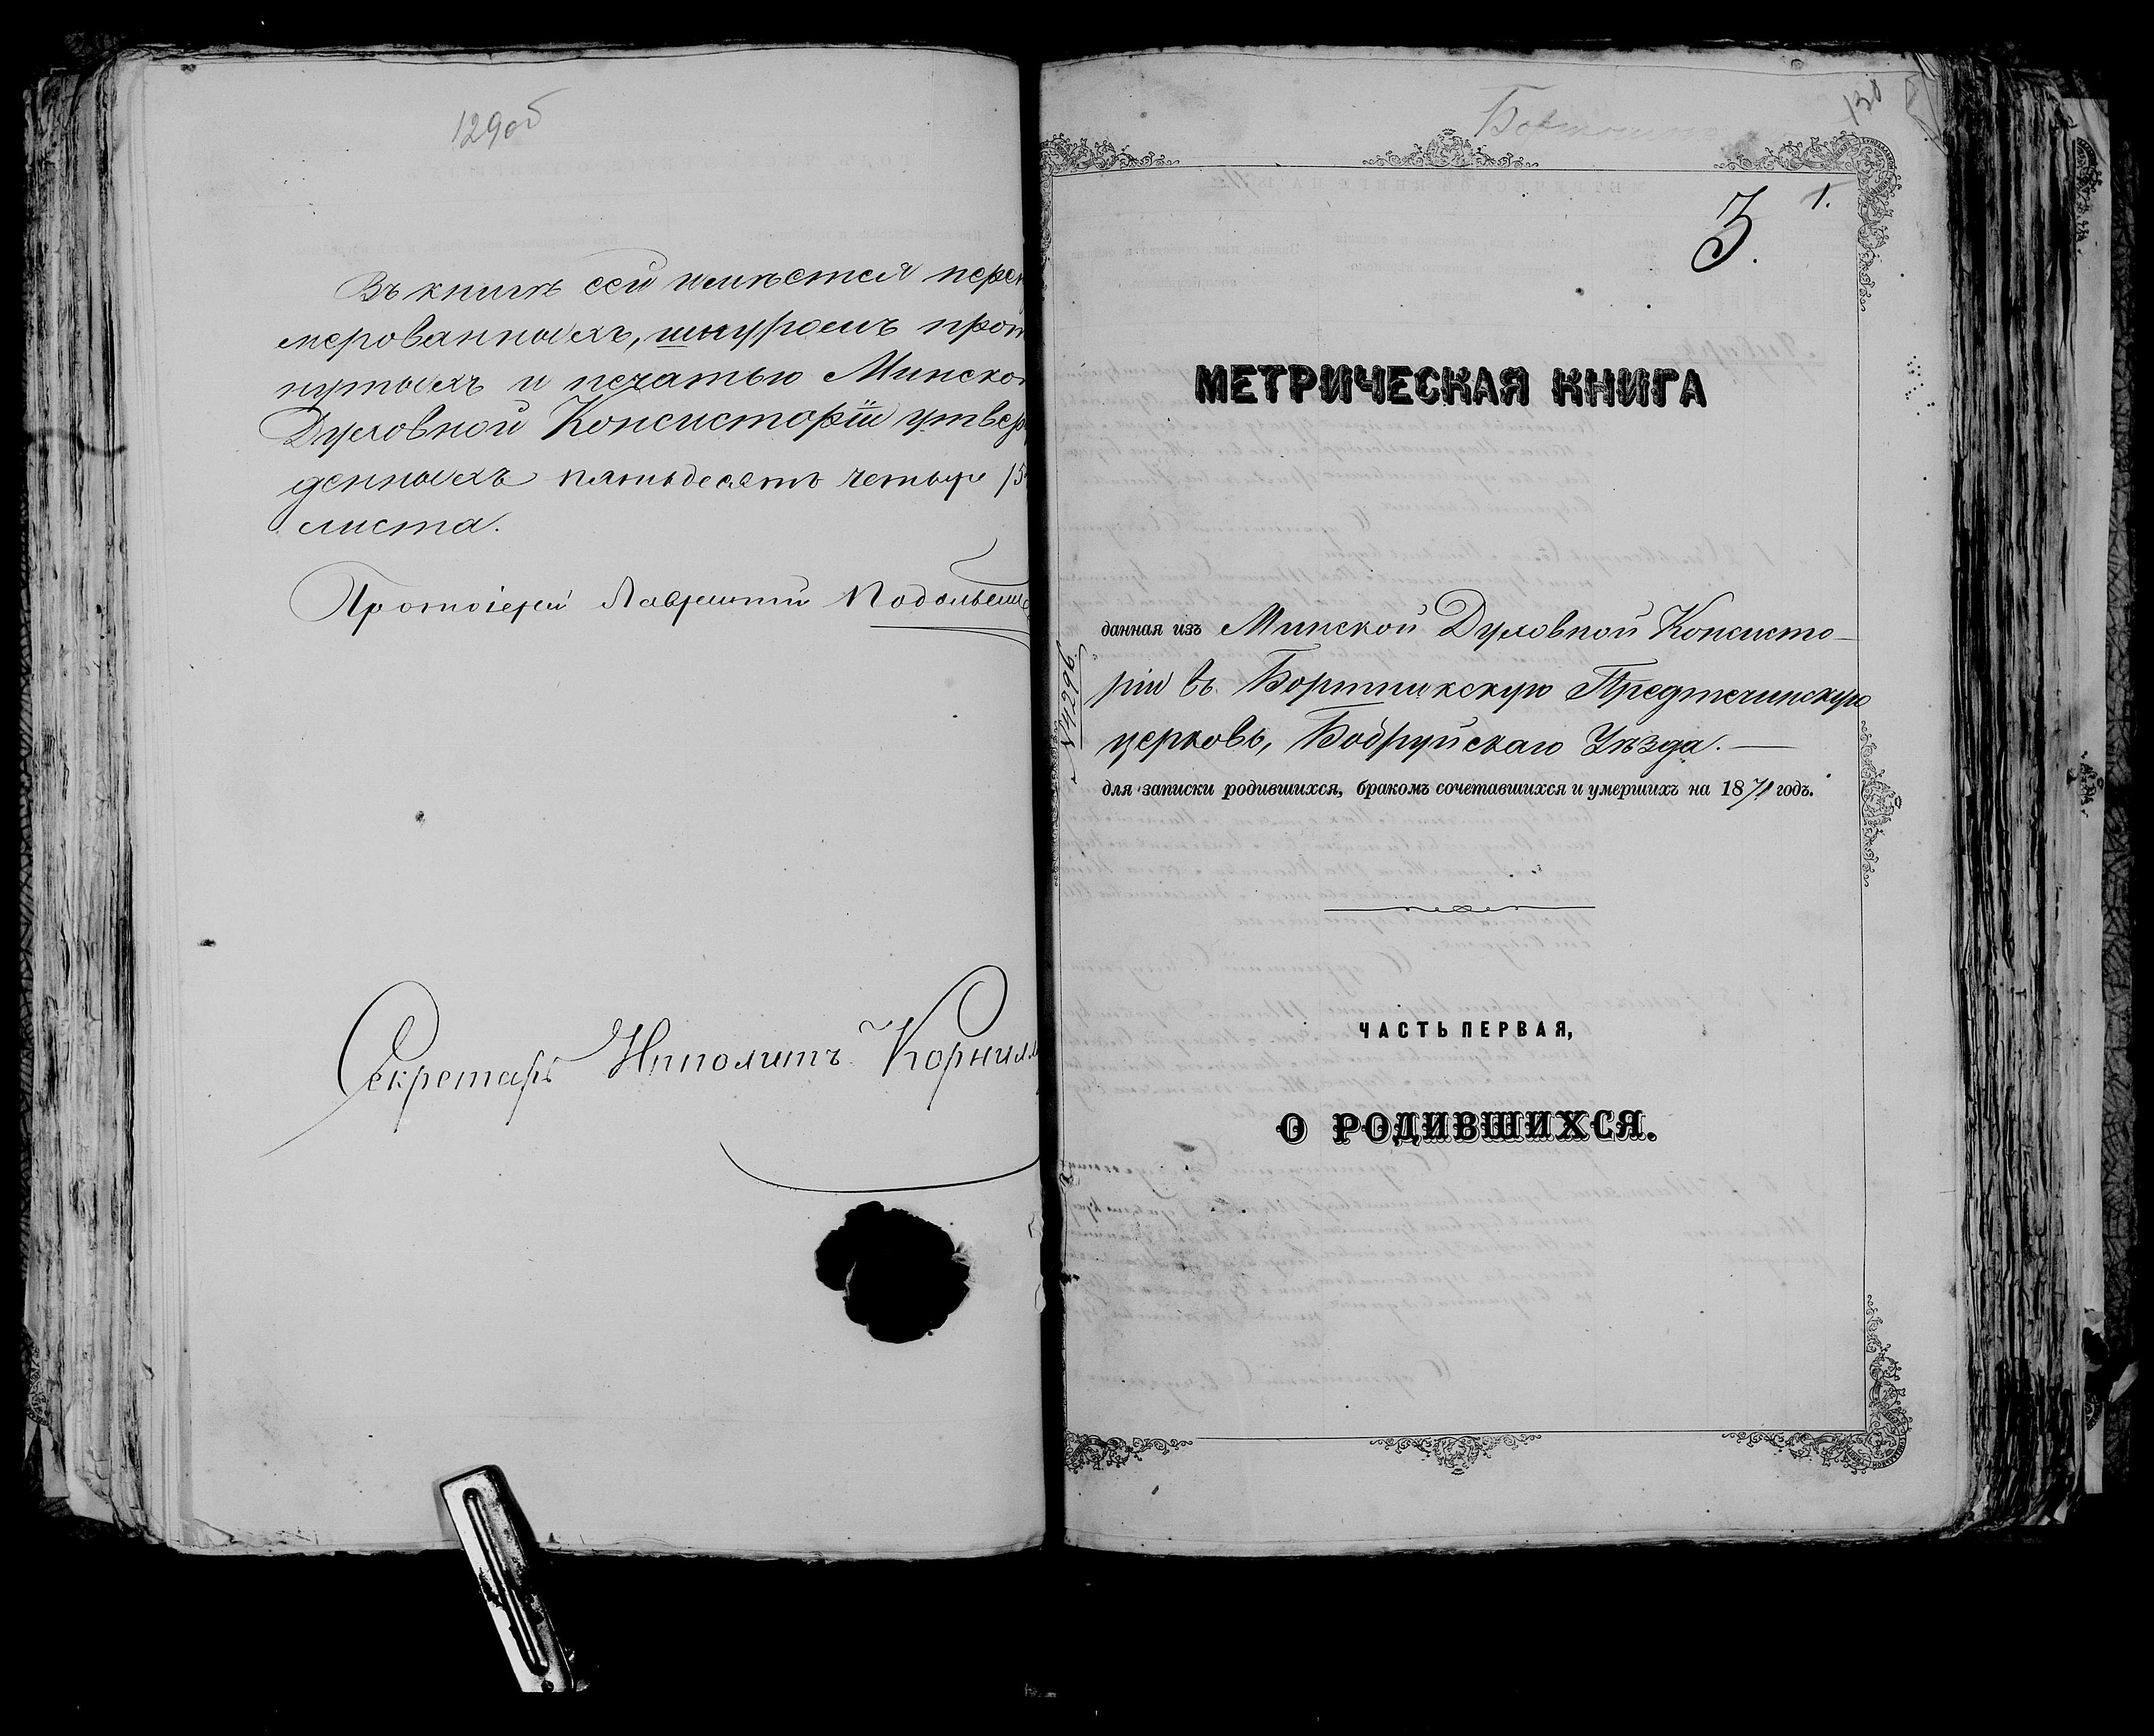 129об
Въ книгѣ сей имѣется пере
мерованныхъ, шнуромъ прот
нутыхъ и печатью Минско
Духовной Консисторіи утвер
денныхъ пятьдесятъ четыре /5
листа.
Протоіерей Лаврентій
Секретарь Ипполитъ Корнил
130
1.
3.
МЕТРИЧЕСКАЯ КНИГА
данная изъ Минской Духовной Консисто-
ріи въ Бортникскую Предтечинскую
церковь, Бобруйскаго Уѣзда. —
для записки родившихся, бракомъ сочетавшихся и умершихъ на 1871 годъ.
№4296
ЧАСТЬ ПЕРВАЯ,
О РОДИВШИХСЯ.